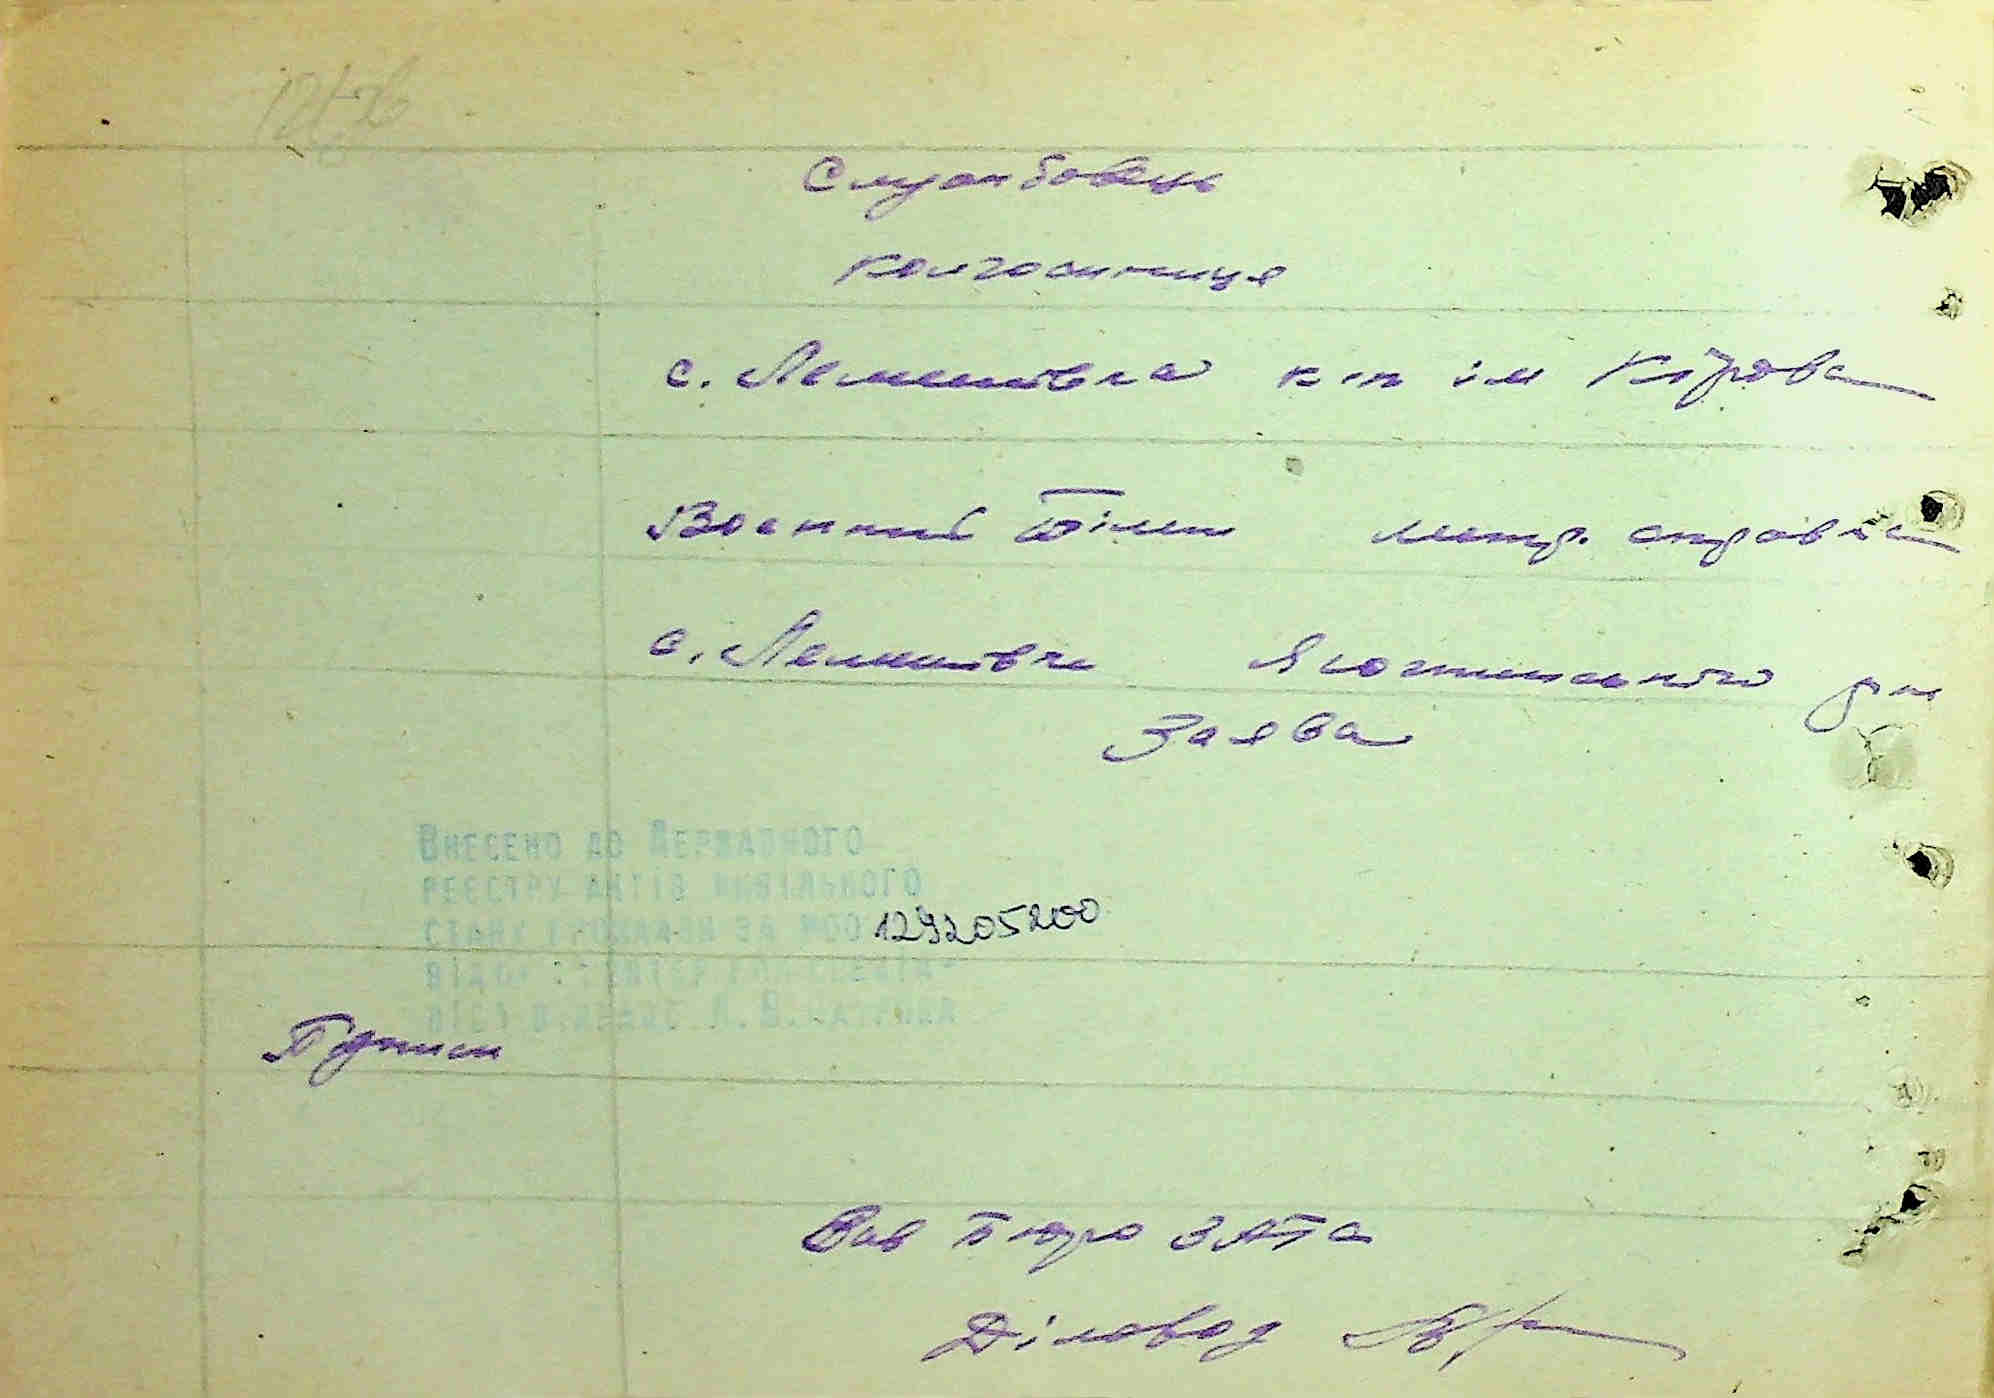 Службовець
колгоспниця
с. Лемешівка к-п ім Кірова
Военний білет метр. справка
с. Лемешівка Яготинського р-н
Заява
ВНЕСЕНО ДО ДЕРЖАВНОГО
РЕЄСТРУ АКТІВ ЦИВІЛЬНОГО
СТАНУ ГРОМАДЯН ЗА №
129205200
Підписи
Зав бюро ЗАГСа
Діловод